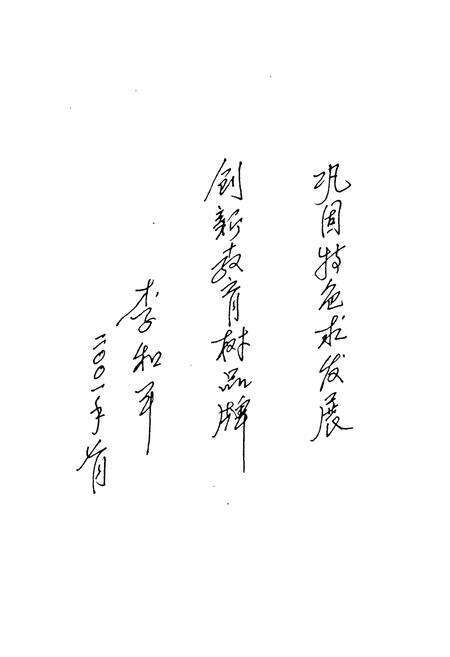 巩固特色求发展
创新教育树品牌
李和平
二〇〇一年 月